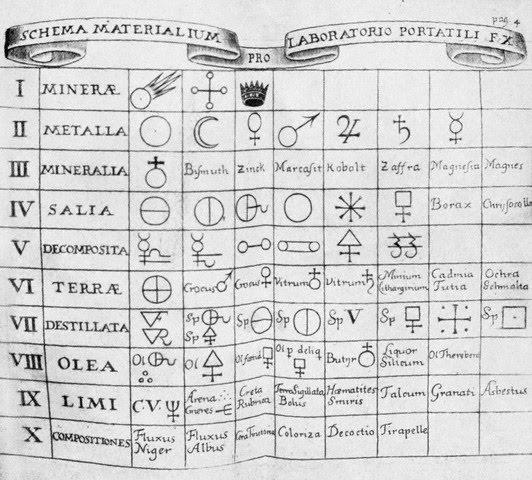 pag. 4
SCHEMA MATERIALIUM PRO LABORATORIO PORTATILI F.X
I MINERÆ
II METALLA
III MINERALIA Bismuth Zinck Marcasit Kobolt Zaffra Magnesia Magnes
IV SALIA Borax Chrysocolla
V DECOMPOSITA
VI TERRÆ Crocus Crocus Vitrum Vitrum Minium Cadmia Ochra
Lithargirium Tutia Schmalta
VII DESTILLATA Sp Sp Sp Sp V Sp Sp Sp
Sp
VIII OLEA Ol Ol Ol fætid Ol p deliq Butyr Liquor Ol Therebint
Silicum
IX LIMI C.V. Arena Creta Terra Sigillata Hæmatites Talcum Granati Asbestus
Cineres Rubrica Bolus Smiris
X COMPOSITIONES Fluxus Fluxus Coloriza Decoctio Tirapelle
Niger Albus